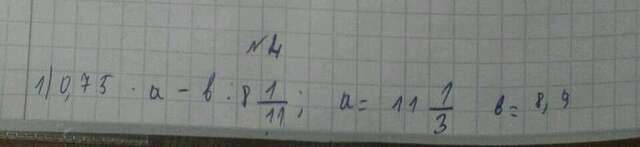 №4
1) 0,75 · a - в : 8 1/11; a = 11 1/3 в = 8,9